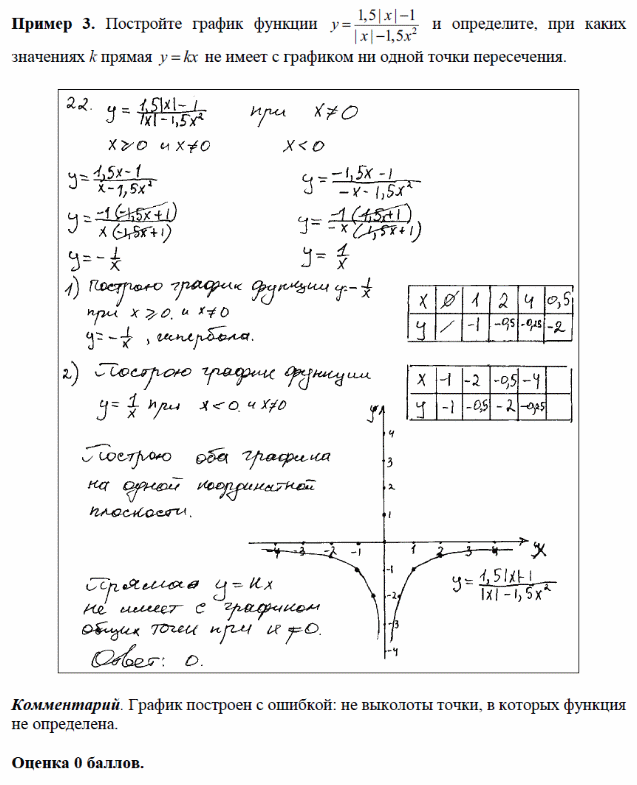 Пример 3. Постройте график функции y = (1,5|x|−1)/(|x|−1,5x²) и определите, при каких
значениях k прямая y = kx не имеет с графиком ни одной точки пересечения.
22. y = (1,5|x|−1)/(|x|−1,5x²) при x≠0
x⩾0 и x≠0 x<0
y = (1,5x−1)/(x−1,5x²) y = (−1,5x−1)/(−x−1,5x²)
y = (−1(−1,5x+1))/(x(−1,5x+1)) y = (−1(1,5x+1))/(−x(1,5x+1))
y = −1/x y = 1/x
1) Построю график функции y=−1/x
при x⩾0. и x≠0
y = −1/x, гипербола.
x 0 1 2 4 0,5
y / −1 −0,5 −0,25 −2
2) Построю график функции
y = 1/x при x<0 и x≠0
x −1 −2 −0,5 −4
y −1 −0,5 −2 −0,25
Построю оба графика
на одной координатной
плоскости.
y
4
3
2
1
−4 −3 −2 −1 1 2 3 4 x
−1
−2
−3
−4
y = (1,5|x|−1)/(|x|−1,5x²)
Прямая y = kx
не имеет с графиком
общих точек при k=0.
Ответ: 0.
Комментарий. График построен с ошибкой: не выколоты точки, в которых функция
не определена.
Оценка 0 баллов.